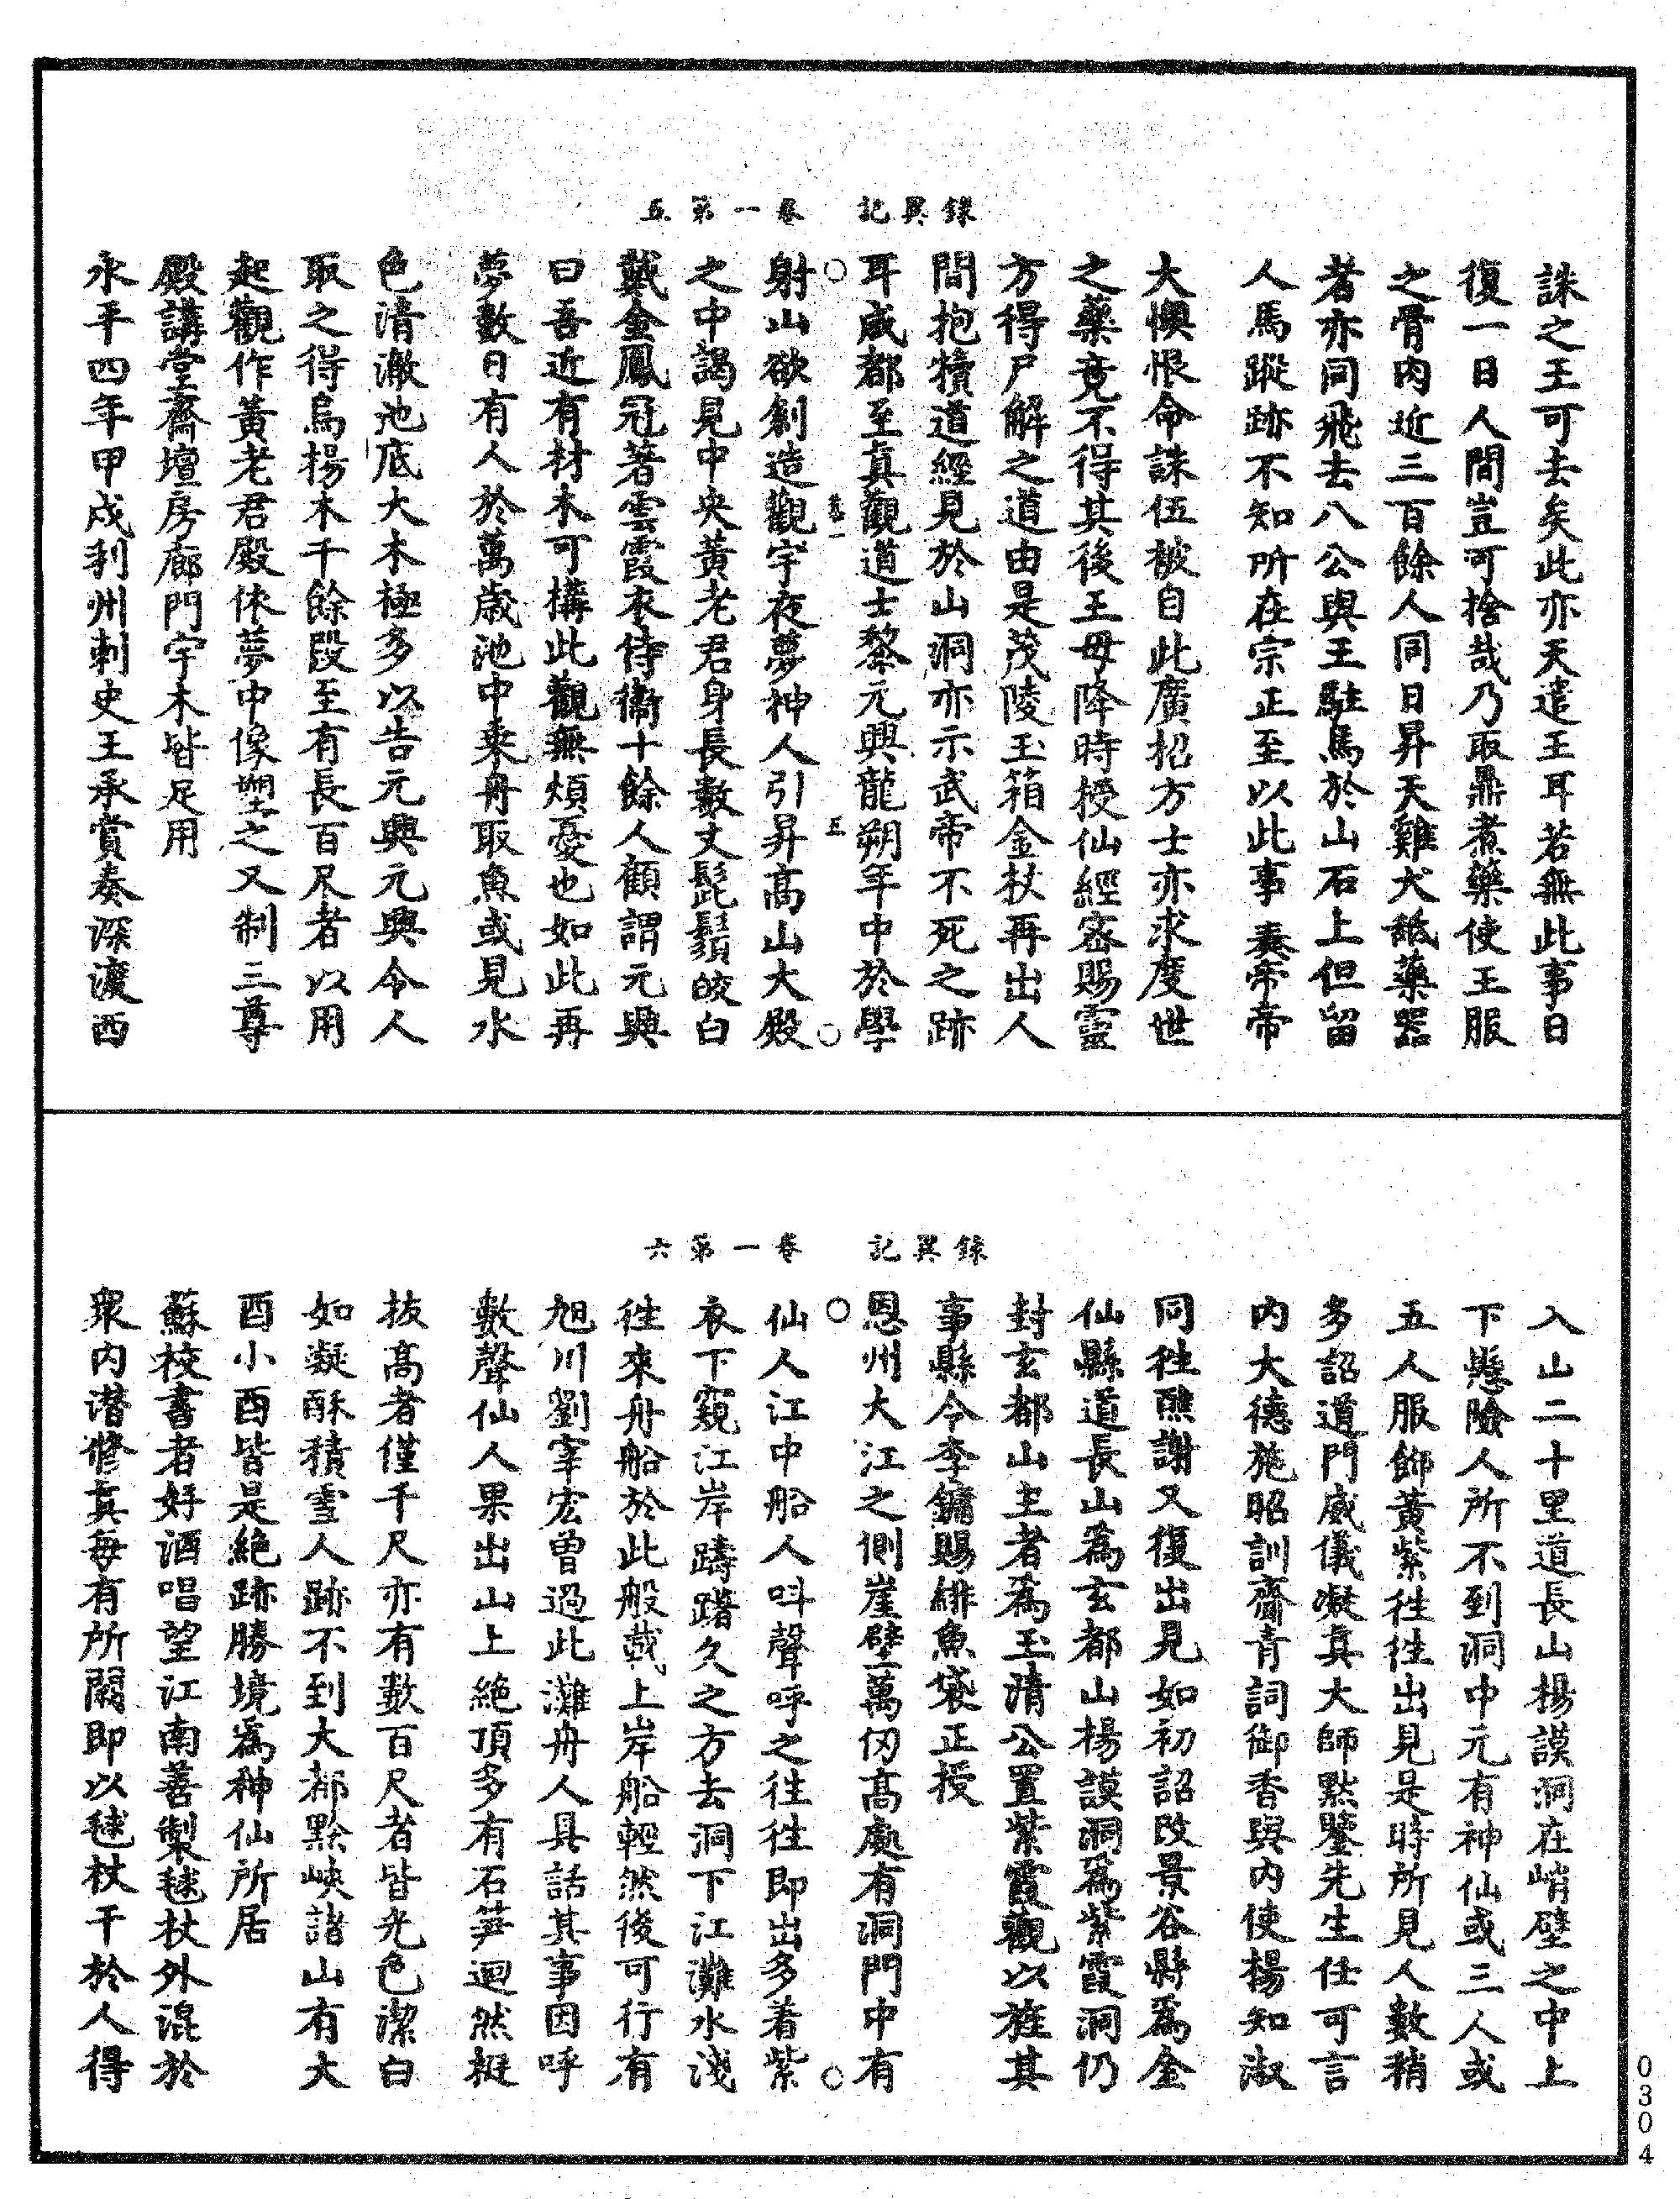 錄異記　卷一第五
誅之王可去矣此亦天遣王耳若無此事日
復一日人間豈可捨哉乃取鼎煮藥使王服
之骨肉近三百餘人同日昇天雞犬舐藥器
者亦同飛去八公與王駐馬於山石上但留
人馬蹤跡不知所在宗正至以此事奏帝帝
大懊恨命誅伍被自此廣招方士亦求度世
之藥竟不得其後王母降時授仙經密賜靈
方得尸解之道由是茂陵玉箱金杖再出人
間抱犢道經見於山洞亦示武帝不死之跡
耳成都至真觀道士黎元興龍朔年中於學
卷一　五
射山欲創造觀宇夜夢神人引昇高山大殿
之中謁見中央黃老君身長數丈髭鬚皎白
戴金鳳冠著雲霞衣侍衞十餘人顧謂元興
曰吾近有材木可構此觀無煩憂也如此再
夢數日有人於萬歲池中乘舟取魚或見水
色清澈池底大木極多以告元興元興令人
取之得烏楊木千餘段至有長百尺者以用
起觀作黃老君殿依夢中像塑之又制三尊
殿講堂齋壇房廊門宇木皆足用
永平四年甲戌利州刺史王承賞奏深渡西
錄異記　卷一第六
入山二十里道長山楊謨洞在峭壁之中上
下懸險人所不到洞中元有神仙或三人或
五人服飾黃紫往往出見是時所見人數稍
多詔道門威儀凝真大師默鑒先生任可言
內大德施昭訓齋青詞御香與內使楊知淑
同往醮謝又復出見如初詔改景谷縣爲金
仙縣道長山爲玄都山楊謨洞爲紫霞洞仍
封玄都山主者爲玉清公置紫霞觀以旌其
事縣令李鏞賜緋魚袋正授
恩州大江之側崖壁萬仞高處有洞門中有
仙人江中船人叫聲呼之往往即出多着紫
衣下窺江岸躊躇久之方去洞下江灘水淺
往來舟船於此般載上岸船輕然後可行有
旭川劉宰宏曾過此灘舟人具話其事因呼
數聲仙人果出山上絕頂多有石笋迥然挺
拔高者僅千尺亦有數百尺者皆光色潔白
如凝酥積雪人跡不到大都黔峽諸山有大
酉小酉皆是絕跡勝境爲神仙所居
蘇校書者好酒唱望江南善製毬杖外混於
衆內潜修真每有所闕即以毬杖干於人得
0304